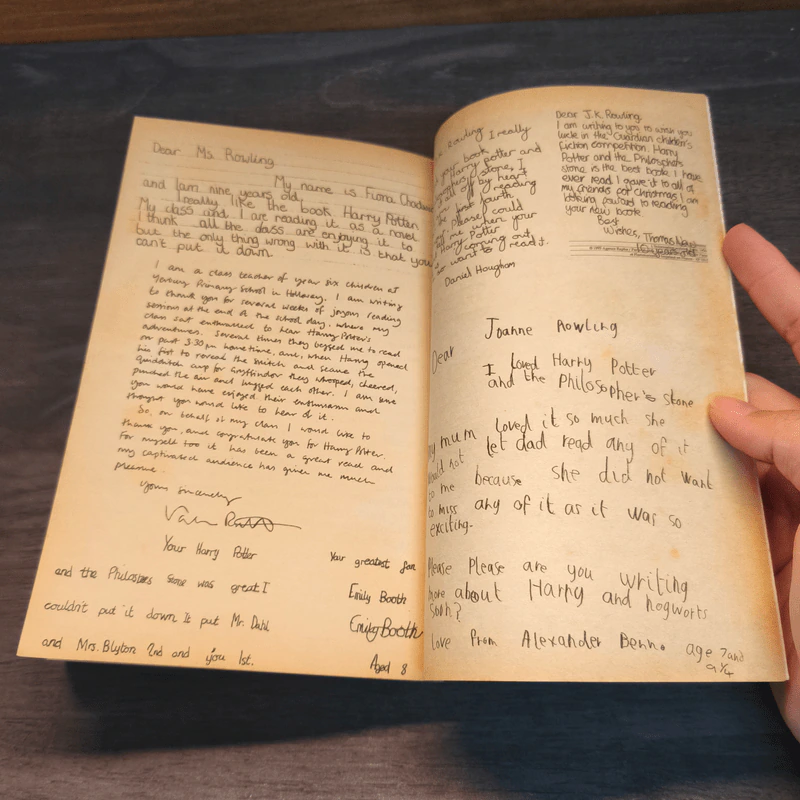 Dear Ms. Rowling
My name is Fiona
and I am nine years old,
I really like the book Harry Potter
My class and I are reading it as a novel
I think all the class are enjoying it to
but the only thing wrong with it is that you
can't put it down.
I am a class teacher of year six children at
Yerbury Primary School in Holloway. I am writing
to thank you for several weeks of joyous reading
sessions at the end of the school day, where my
class sat enthralled to hear Harry Potter's
adventures. Several times they begged me to read
on past 3:30 pm hometime, and, when Harry opened
his fist to reveal the snitch and secure the
quidditch cup for Gryffindor they whooped, cheered,
punched the air and hugged each other. I am sure
you would have enjoyed their enthusiasm and
thought you would like to hear of it.
So, on behalf of my class I would like to
thank you, and congratulate you for Harry Potter.
For myself too it has been a great read and
my captivated audience has given me much
pleasure.
Yours sincerely
Your Harry Potter
and the Philosphes stone was great I
couldn't put it down It put Mr. Dahl
and Mrs. Blyton 2nd and you 1st.
Your greatest fan
Emily Booth
Emily Booth
Aged 8
Rowling I really
your book
Harry Potter and
stone, I
off by heart
reading
the first fourth
Please could
me when your
Harry Potter
coming out
want to read it.
Daniel Hougham
Dear J.K. Rowling
I am writing to you to wish you
luck in the Guardian children's
fiction competition. Harry
Potter and the Philosphers
stone is the best book I have
ever read I gave it to all of
my friends for christmas. I am
looking forward to reading
your new book
Best
Wishes, Thomas
Dear Joanne Rowling
I loved Harry Potter
and the Philosopher's stone
My mum loved it so much she
would not let dad read any of it
to me because she did not want
to miss any of it as it was so
exciting.
Please Please are you writing
more about Harry and hogworts
soon?
love From Alexander Benn. age 7 and
a ¼